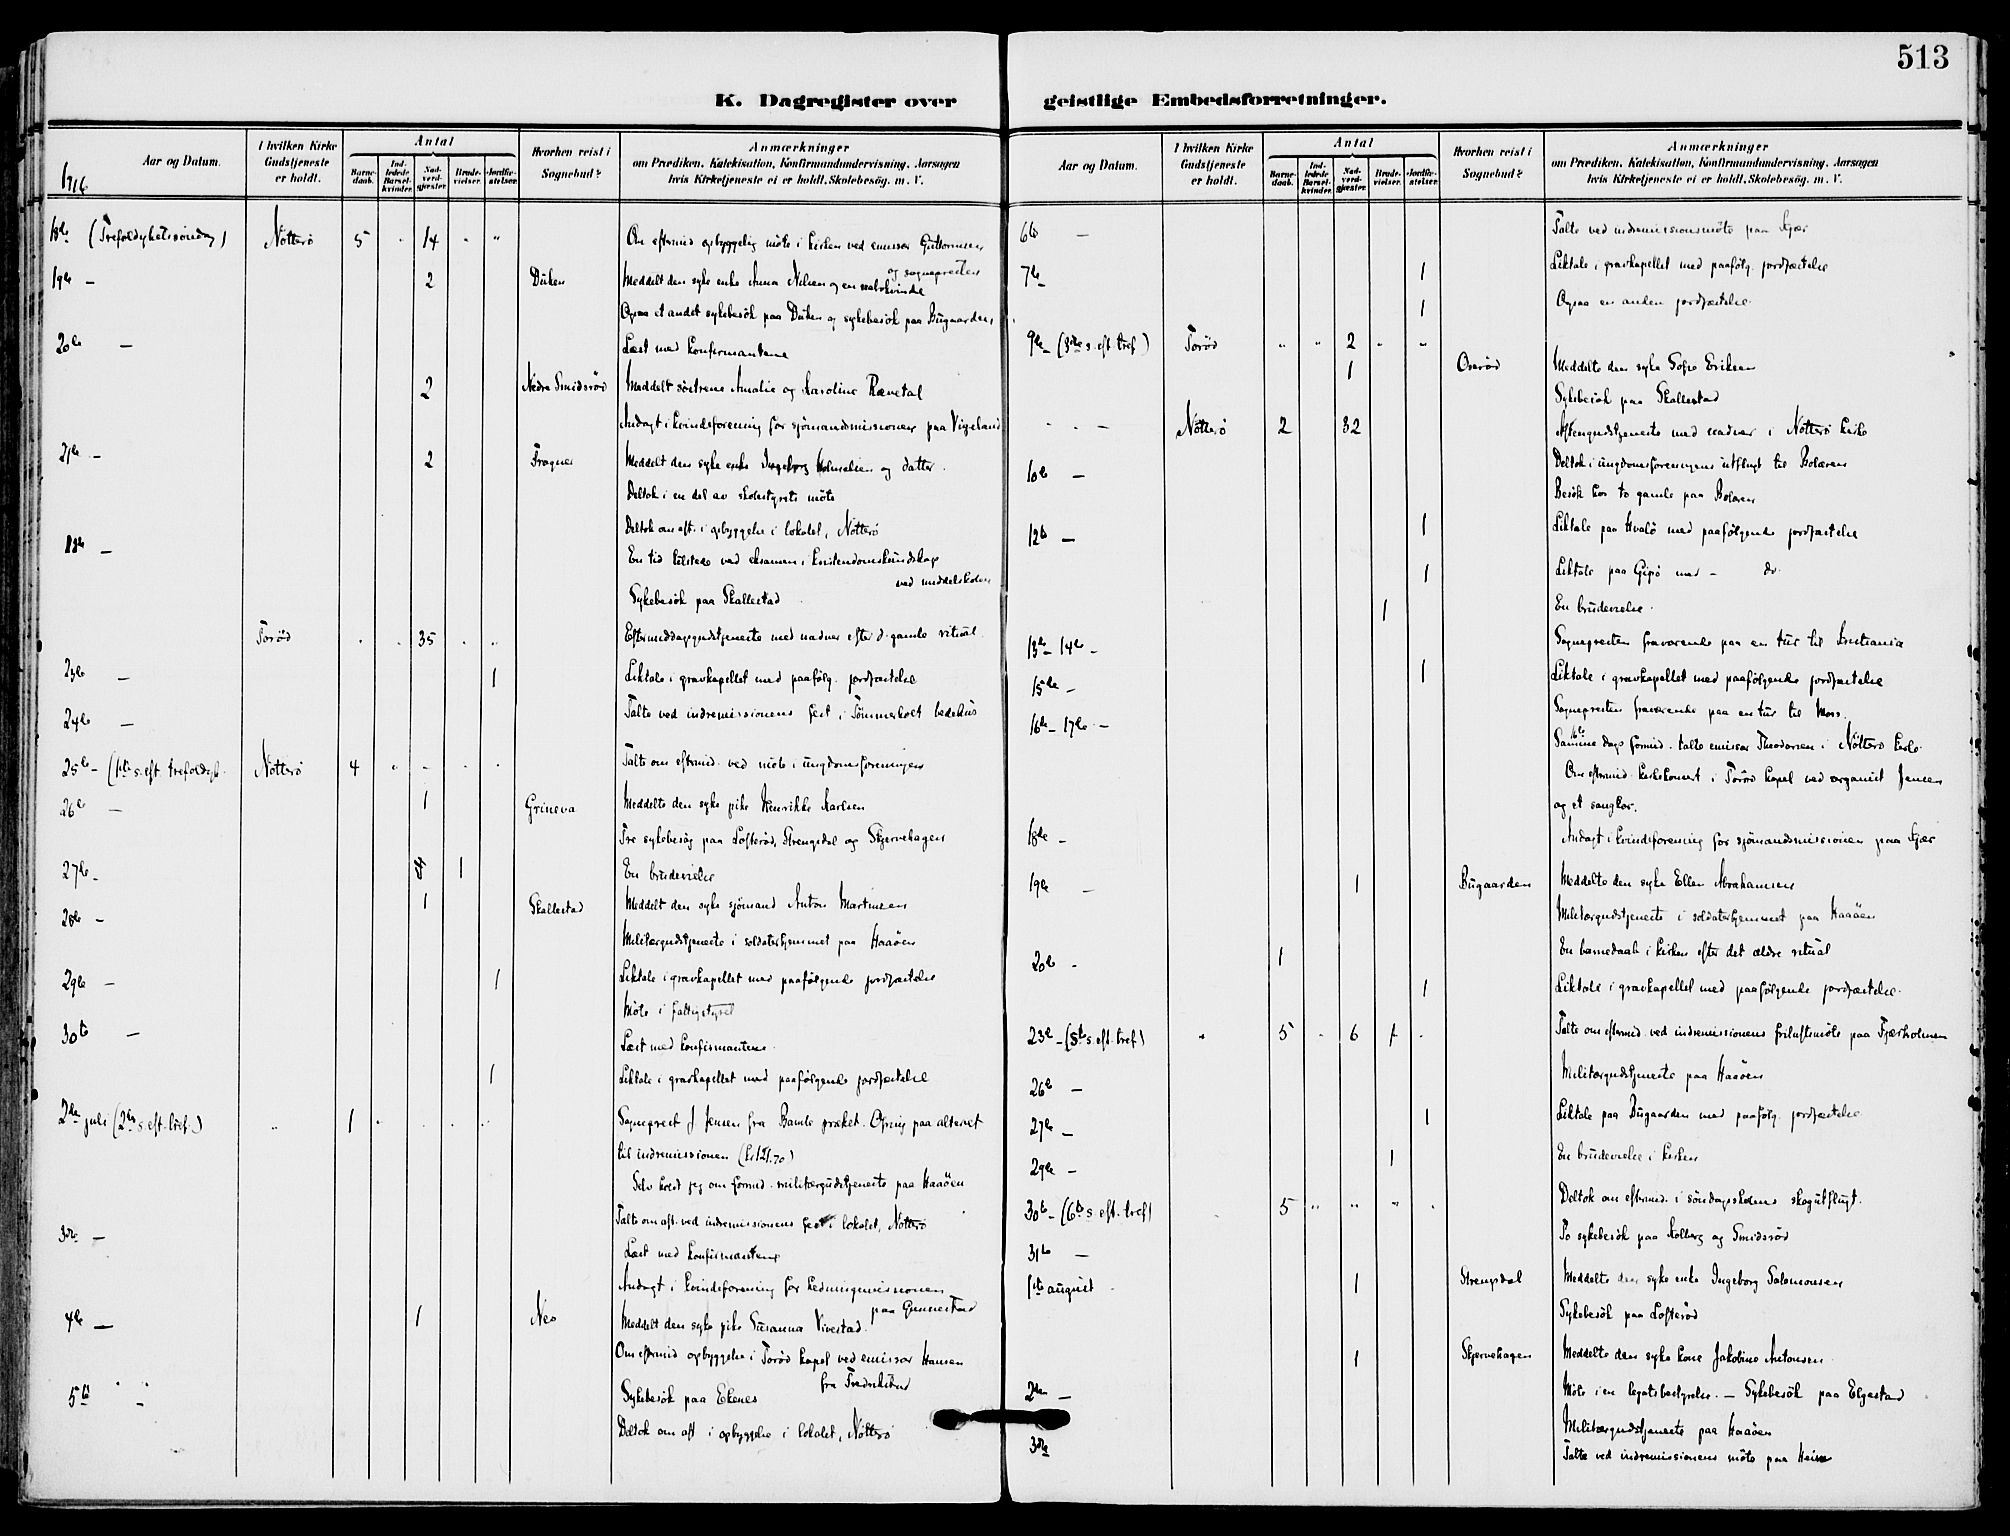 513
K. Dagregister over geistlige Embedsforretninger.
Aar og Datum.
I hvilken Kirke Gudstjeneste er holdt.
Antal
Barne-daab.
Ind-ledede Barsel-kvinder.
Nad-verd-gjester.
Brude-vielser.
Jordfæ-stelser.
Hvorhen reist i Sognebud?
Anmærkninger
om Prædiken, Katekisation, Konfirmandundervisning, Aarsagen
hvis Kirketjeneste ei er holdt, Skolebesög, m. V.
1916
18de (Trefoldighetssöndag) Nötterö 5 " 14 " " Om eftermid opbyggelig möte i kirken ved emissær Guttormsen
og sognepresten
19de – 2 Duken Meddelt den syke enke Anna Nilsen og en
Ogsaa et andet sykebesök paa Duken og sykebesök paa Bugaarden
20de – Læst med konfirmantene
2 Nedre Smidsröd Meddelt söstrene Amalie og Karoline Rævetal
Andagt i kvindeforening for sjömandsmissionen paa Vigeland
21de – 2 Trogner Meddelt den syke enke Ingeborg og datter.
Deltok i en del av skolestyrets möte
Deltok om aft. i opbyggelse i lokalet, Nötterö
– En tid tilstede ved eksamen i kristendomskundskap
ved middelskolen
Sykebesök paa Skallestad
Toröd " " 35 " " Eftermiddagsgudstjeneste med nadver efter d. gamle ritual.
23de – 1 Liktale i gravkapellet med paafölg. jordfæstelse
24de – Talte ved indremissionens fest i Tömmerholt bedehus
25de – (1ste s. eft. trefoldigh. Nötterö 4 " – " " Talte om eftermid. ved möte i ungdomsforeningen
26de – 1 Grineva Meddelte den syke pike Henrikke Karlsen
Tre sykebesög paa Lofteröd, Strengsdal og Skjervehagen
27de – 1 En brudevielse
28de – 1 Skallestad Meddelt den syke sjömand Anton Martinsen
Militærgudstjeneste i soldaterhjemmet paa Haaöen
29de – 1 Liktale i gravkapellet med paafölgende jordfæstelse
Möte i fattigstyret
30te – Læst med konfirmantene.
1 Liktale i gravkapellet med paafölgende jordfæstelse
2den juli (2den s. eft. tref.) " 1 " " " " Sogneprest J. Jensen fra Bamle præket. Ofring paa alteret
til indremissionen (kr 121.70)
Selv holdt jeg om formid. militærgudstjeneste paa Haaöen
Talte om aft. ved indremissionens fest i lokalet, Nötterö
3die – Læst med konfirmantene
Andagt i kvindeforening for hedningemissionen
paa Gunnestad
4de – 1 Nes Meddelt den syke pike Susanna Vivestad.
Om eftermid opbyggelse i Toröd kapel ved emissær Hansen
fra Fredrikstad
5te " " Sykebesök paa Ekenes
Deltok om aft i opbyggelse i lokalet, Nötterö
6te – Talte ved indremissionsmöte paa Kjær
7de – 1 Liktale i gravkapellet med paafölg. jordfæstelse
1 Ogsaa en anden jordfæstelse.
9de – (3die s. eft. tref.) Toröd " " 2 " "
1 Oseröd Meddelte den syke Sofie Eriksen
Sykebesök paa Skallestad
" " – Nötterö 2 32 Aftengudstjeneste med nadver i Nötterö kirke
10de – Deltok i ungdomsforeningens utflugt til Bolæren
Besök hos to gamle paa Bolæren
12te – 1 Liktale paa Hvalö med paafölgende jordfæstelse
1 Liktale paa Gipö med – do.
1 En brudevielse.
13de – 14de – Sognepresten fraværende paa en tur til Kristiania
15de – 1 Liktale i gravkapellet med paafölgende jordfæstelse
16de – 17de – Sognepresten fraværende paa en tur til Moss.
16de
Samme dags formid. talte emissær Theodorsen i Nötterö kirke
Om eftermid. kirkekonsert i Toröd kapel ved organist Jensen
og et sangkor.
18de – Andagt i kvindeforening for sjömandsmissionen paa Kjær
19de – 1 Bugaarden Meddelte den syke Ellen Abrahamsen
Militærgudstjeneste i soldaterhjemmet paa Haaöen
20de – 1 En barnedaab i kirken efter det ældre ritual
1 Liktale i gravkapellet med paafölgende jordfæstelse.
23de – (5te s. eft. tref.) " 5 " 6 1 " Talte om eftermid. ved indremissionens friluftsmöte paa Fjærholmen
26de – Militærgudstjeneste paa Haaöen
27de – 1 Liktale paa Bugaarden med paafölg. jordfæstelse
29de – 1 En brudevielse i kirken
30te – (6te s. eft. tref) " 5 " " " " Deltok om eftermid. i söndagsskolens skogutflugt.
31te – To sykebesök paa Kolberg og Smidsröd
1ste august 1 Strengsdal Meddelte den syke enke Ingeborg Salomonsen
Sykebesök paa Lofteröd
1 Skjervehagen Meddelte den syke kone Jakobine Antonsen
2den – Möte i en legatsbestyrelse. – Sykebesök paa Elgestad
Militærgudstjeneste paa Haaöen
3die Talte ved indremissionens möte paa Heim